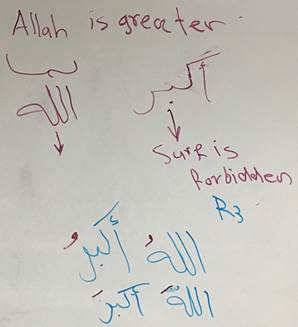 Allah is greater.
الله أكبر
Surf is
forbidden
R3
اللهُ أكبرُ
اللهَ أكبرَ